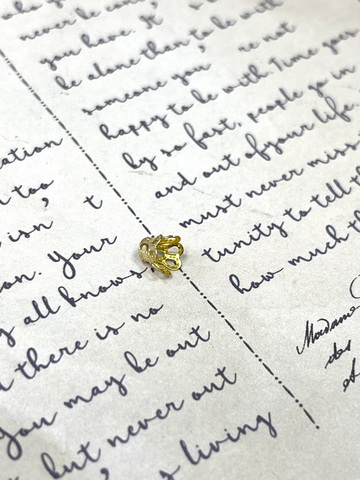 never be
you have. It
be alone than to be with
someone you re not
happy to be with. Time goes
by so fast, people go in
and out of your life
must never miss
tunity to tell th
how much th
Madame
des
et
ation
too
isn ' t
on. Your
all knows
there is no
you may be out
but never out
s living